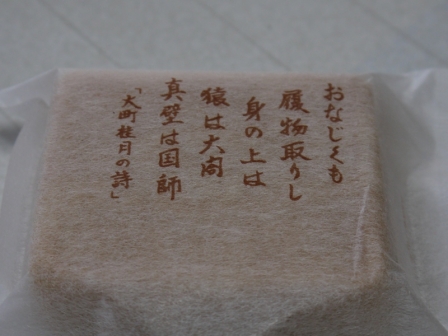 おなじくも
履物取りし
身の上は
猿は大閤
真壁は国師
「大町桂月の詩」